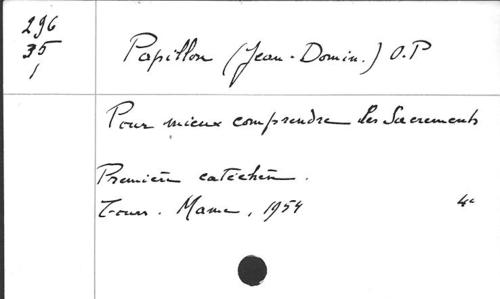 296
35
1
Papillon (Jean-Domin.) O.P
Pour mieux comprendre les Sacrements
Première catéchèse.
Tours. Mame, 1954 4°